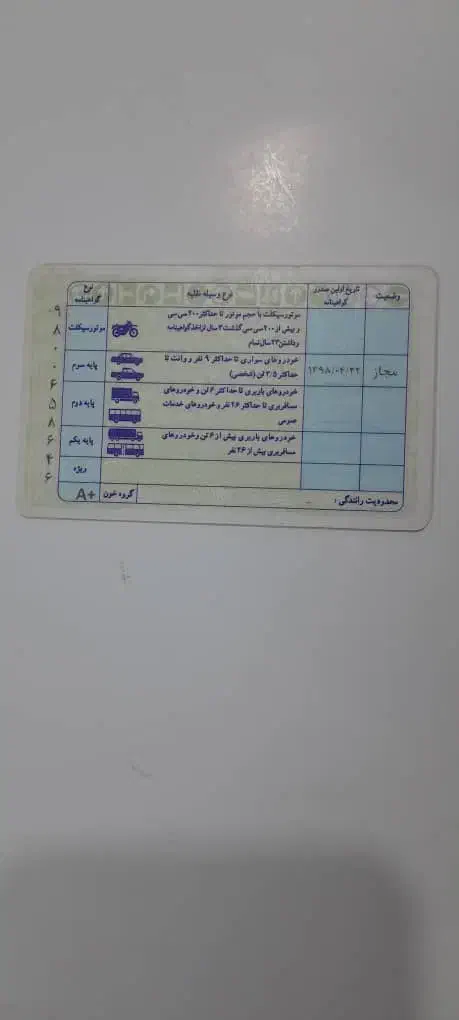 وضعیت
تاریخ اولین صدور
گواهینامه
نوع وسیله نقلیه
نوع
گواهینامه
موتورسیکلت با حجم موتور تا حداکثر ۲۰۰ سی سی
و بیش از ۲۰۰ سی سی گذشت ۲ سال از اخذ گواهینامه
و داشتن ۲۳ سال تمام
موتورسیکلت
مجاز
۱۳۹۸/۰۴/۲۲
خودروهای سواری تا حداکثر ۹ نفر و وانت تا
حداکثر ۳/۵ تن (شخصی)
پایه سوم
خودروهای باربری تا حداکثر ۶ تن و خودروهای
مسافربری تا حداکثر ۲۶ نفر و خودروهای خدمات
عمومی
پایه دوم
خودروهای باربری بیش از ۶ تن و خودروهای
مسافربری بیش از ۲۶ نفر
پایه یکم
ویژه
محدودیت رانندگی :
گروه خون
A+
۹۸۰۰۶۵۸۶۴۶